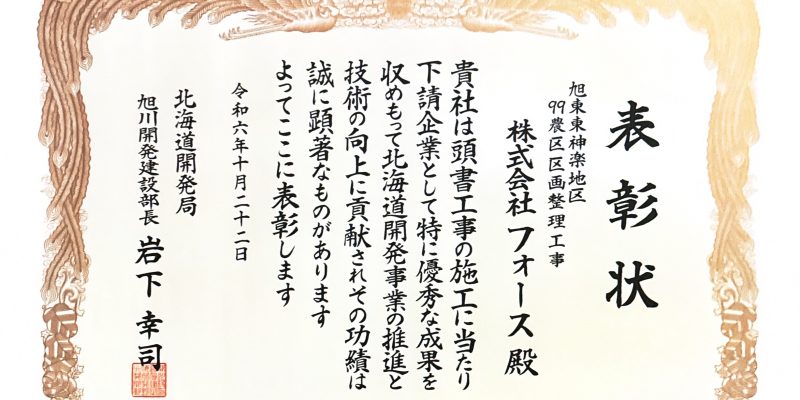 表彰状
旭東東神楽地区
99農区区画整理工事
株式会社 フォース 殿
貴社は頭書工事の施工に当たり
下請企業として特に優秀な成果を
収めもって北海道開発事業の推進と
技術の向上に貢献されその功績は
誠に顕著なものがあります
よってここに表彰します
令和六年十月二十二日
北海道開発局
旭川開発建設部長 岩下幸司